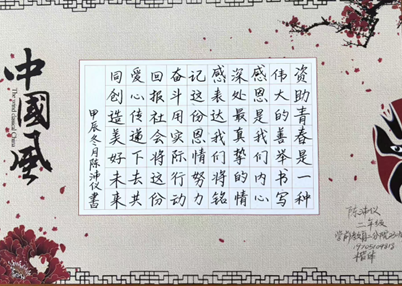 中國風
资助青春是一种
伟大的善举书写
感恩是我们内心
深处最真挚的情
感表达我们将铭
记这份恩情努力
奋斗用实际行动
回报社会将这份
爱心传递下去共
同创造美好未来
甲辰冬月陈沛仪書
陈沛仪
二年级